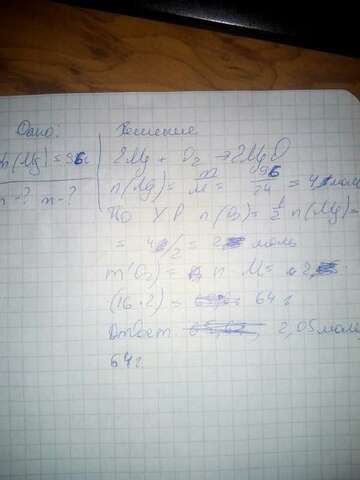 Дано:
m(Mg) = 96г
n-? m-?
Решение
2Mg + O2 → 2MgO
n(Mg) = m/M = 96/24 = 4 моль
По УР n(O2) = 1/2 n(Mg) =
= 4/2 = 2 моль
m(O2) = n M = 2
(16·2) = 64 г
Ответ 2,05 моль
64г